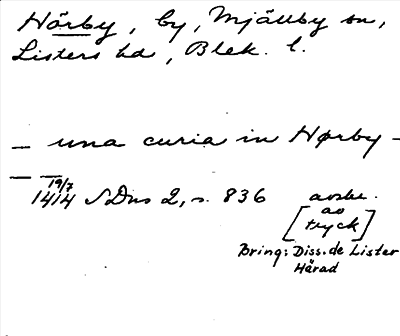 Hörby, by, Mjällby sn,
Listers hd, Blek. l.
— una curia in Hørby —
— —
19/7
1414 SDns 2, s. 836 avskr.
[av
tryck]
Bring: Diss. de Lister
Härad